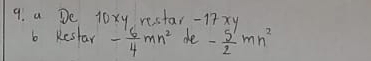 9. a De 10xy restar -17xy
b Restar - 6/4 mn² de - 5/2 mn²